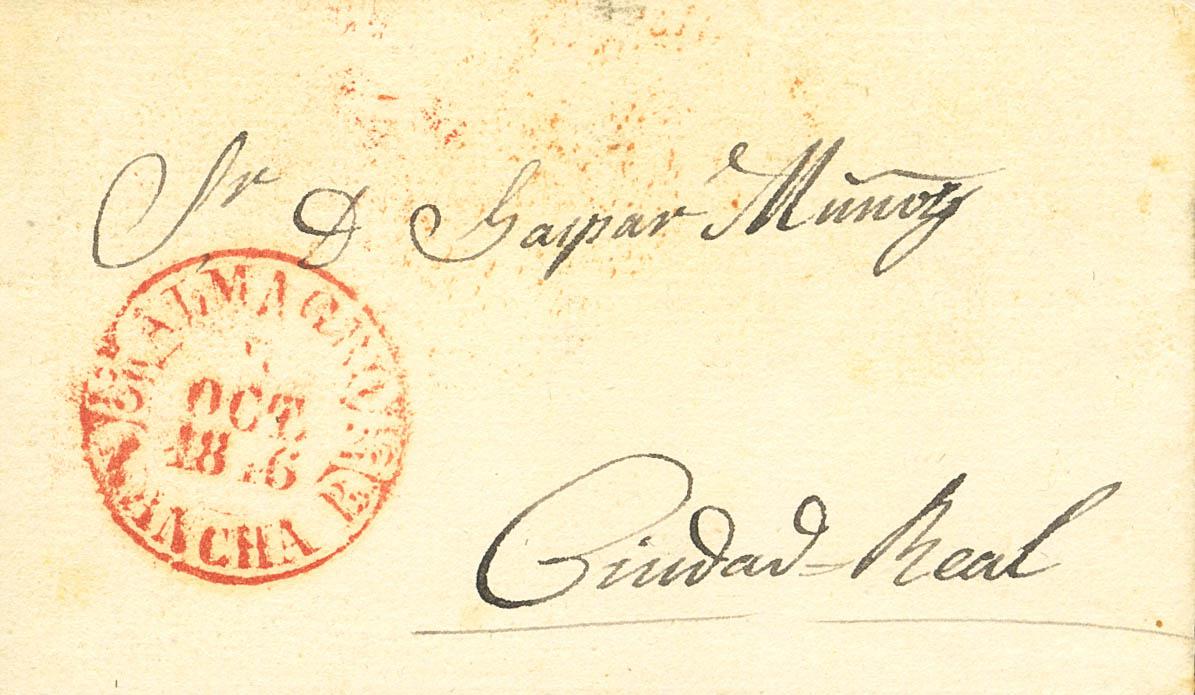 Sr D Gaspar Muñoz
ALMAGRO
OCT.
18 6
MANCHA
Ciudad-Real